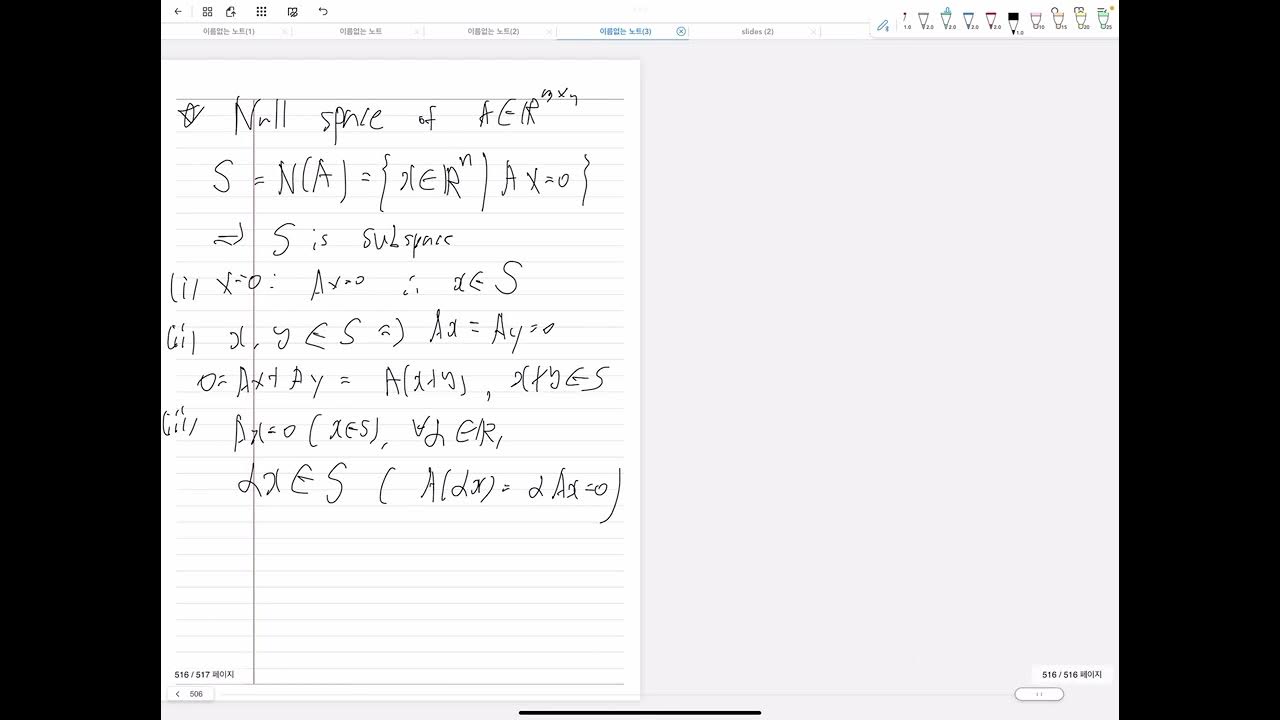 이름없는 노트(1)
이름없는 노트
이름없는 노트(2)
이름없는 노트(3)
slides (2)
1.0 2.0 2.0 2.0 2.0 1.0 10 15 30 25
☆ Null space of A∈ℝ^{m×n}
S = N(A) = {x∈ℝ^n | Ax=0}
⇒ S is subspace
(i) x=0: Ax=0 ∴ x∈S
(ii) x, y ∈ S ⇒ Ax = Ay=0
0=Ax+Ay = A(x+y), x+y∈S
(iii) Ax=0 (x∈S), ∀α∈ℝ,
αx∈S (A(αx)= αAx=0)
516 / 517 페이지
516 / 516 페이지
506